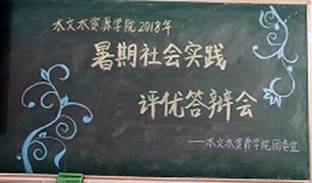 水文水资源学院2018年
暑期社会实践
评优答辩会
——水文水资源学院团委宣